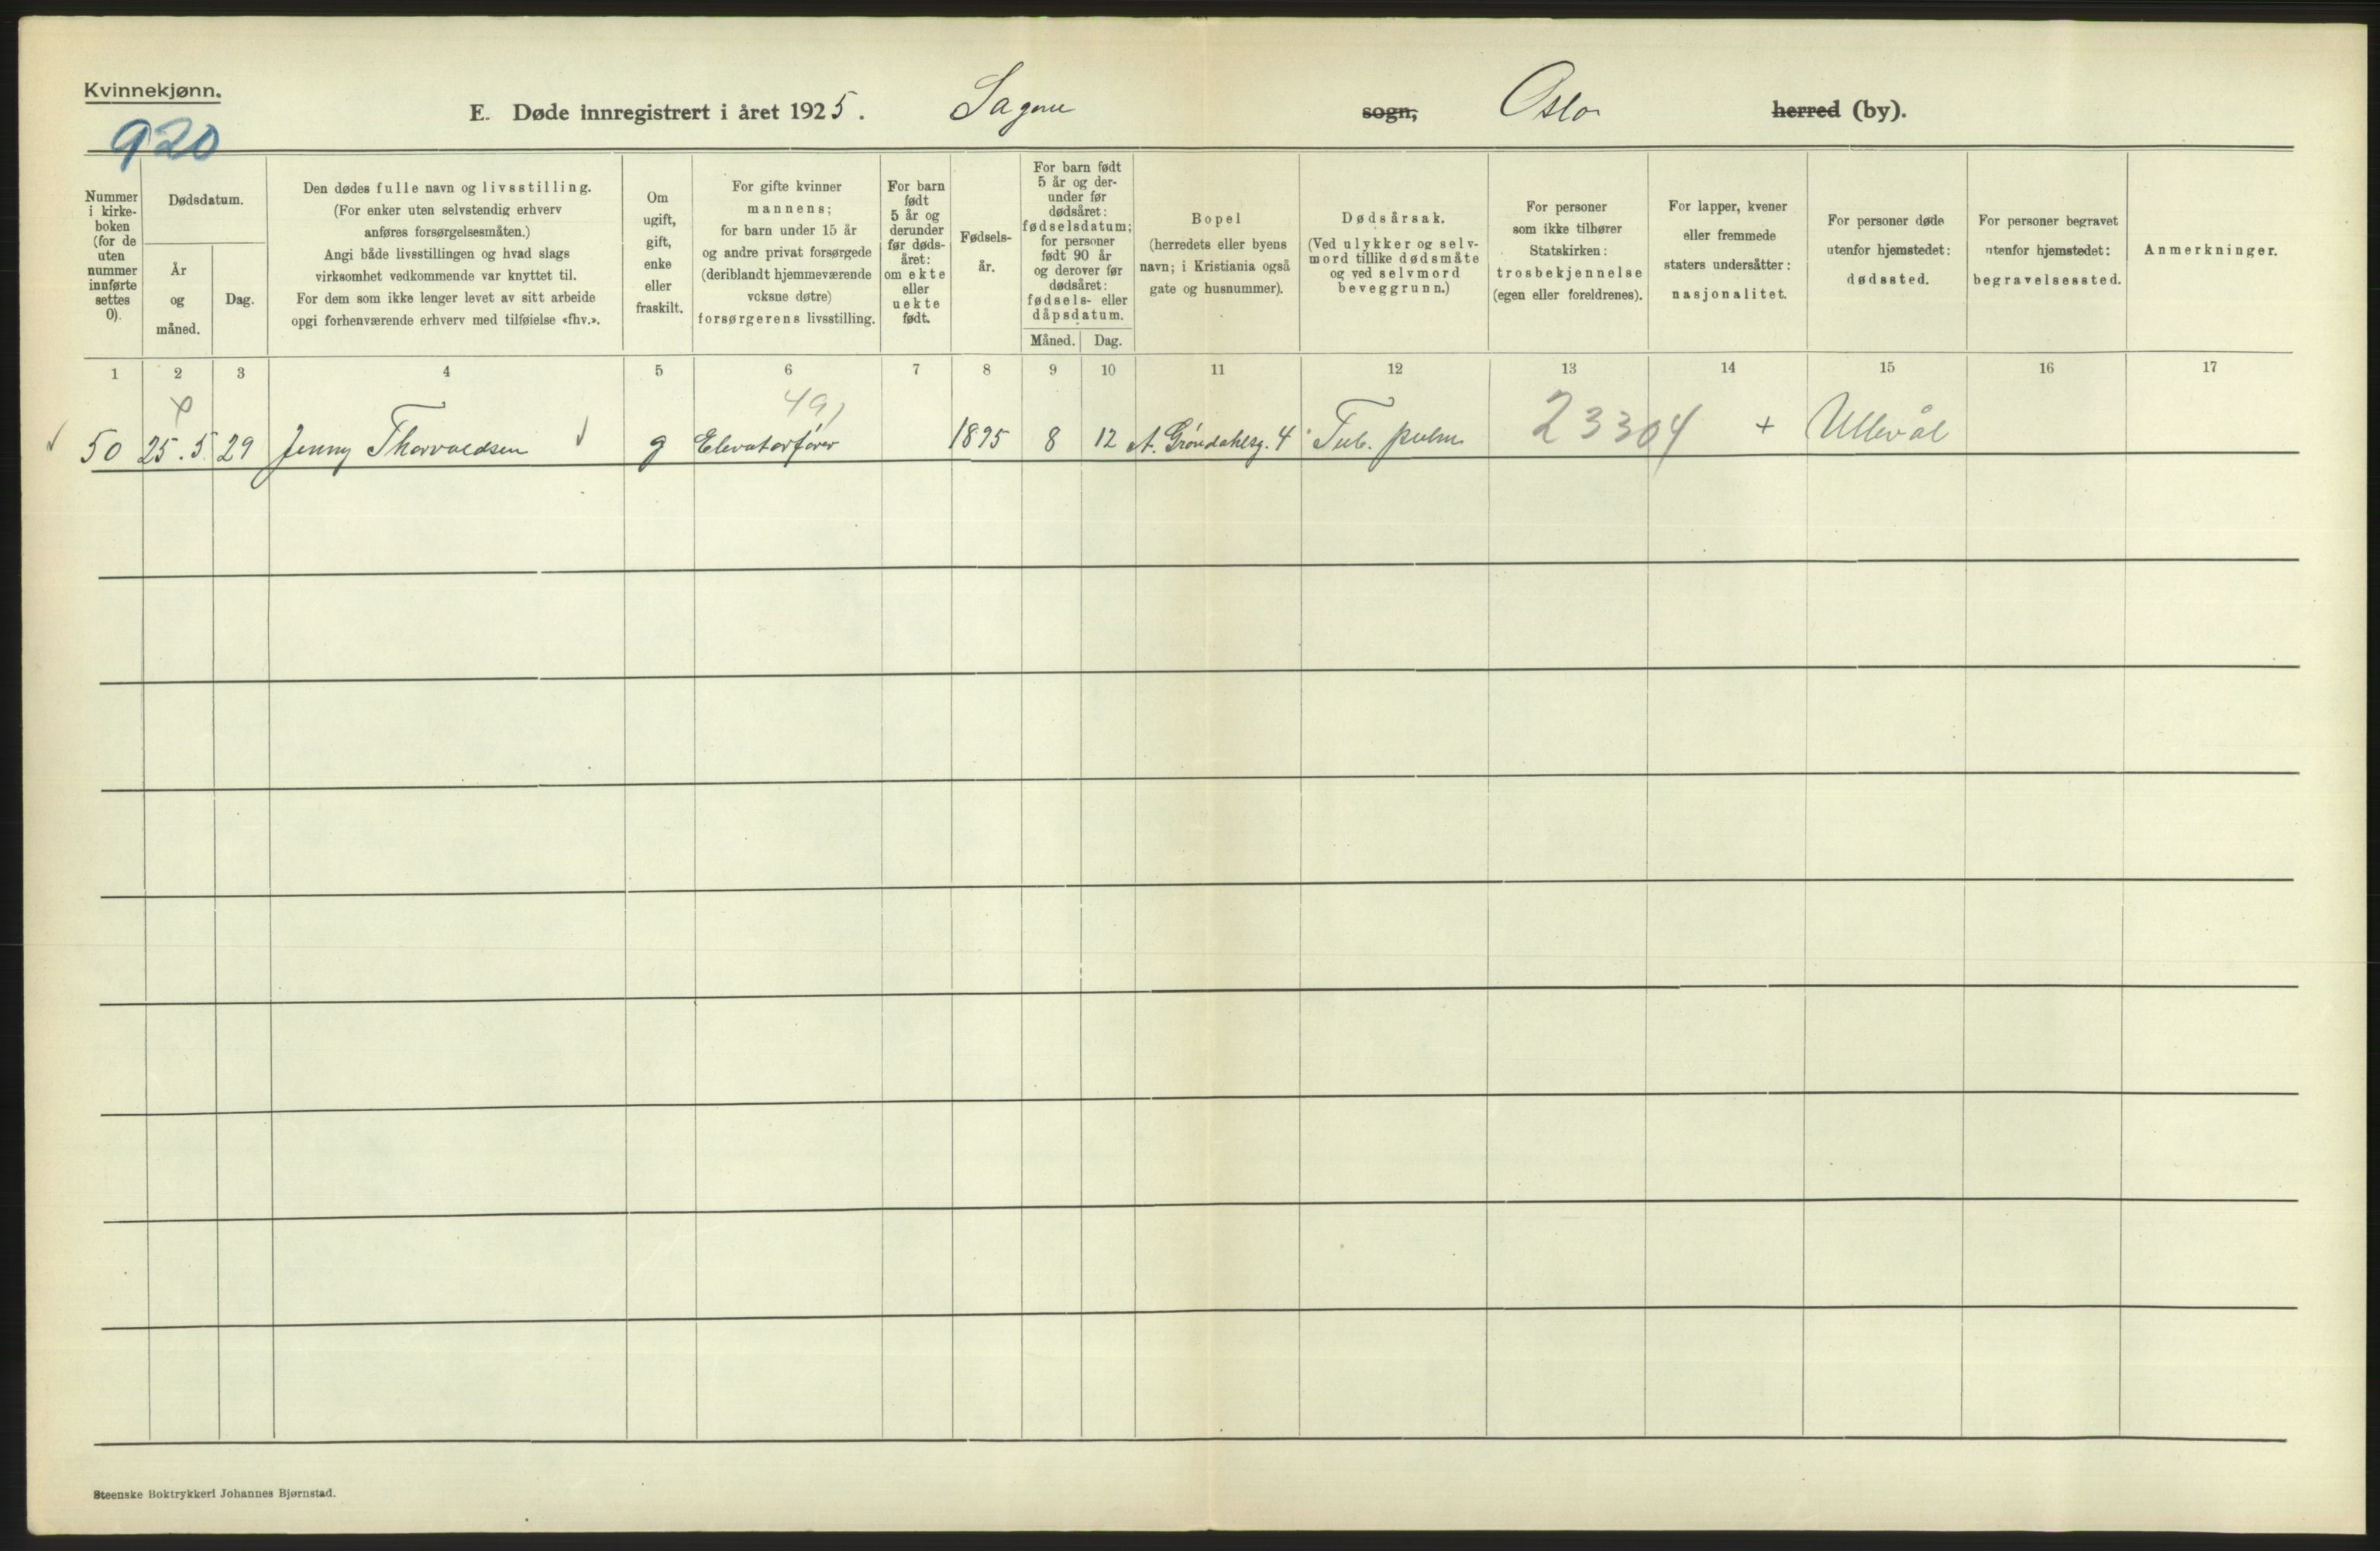 Kvinnekjønn.
920
E. Døde innregistrert i året 1925. Sagene sogn, Oslo herred (by).
Nummer i kirke- boken (for de uten nummer innførte settes 0).
Dødsdatum.
År og måned.
Dag.
Den dødes fulle navn og livsstilling.
(For enker uten selvstendig erhverv
anføres forsørgelsesmåten.)
Angi både livsstillingen og hvad slags
virksomhet vedkommende var knyttet til.
For dem som ikke lenger levet av sitt arbeide
opgi forhenværende erhverv med tilføielse «fhv.».
Om
ugift,
gift,
enke
eller
fraskilt.
For gifte kvinner
mannens;
for barn under 15 år
og andre privat forsørgede
(deriblandt hjemmeværende
voksne døtre)
forsørgerens livsstilling.
For barn
født
5 år og
derunder
før døds-
året:
om ekte
eller
uekte
født.
Fødsels-
år.
For barn født
5 år og der-
under før
dødsåret:
fødselsdatum;
for personer
født 90 år
og derover før
dødsåret:
fødsels- eller
dåpsdatum.
Måned. Dag.
Bopel
(herredets eller byens
navn; i Kristiania også
gate og husnummer).
Dødsårsak.
(Ved ulykker og selv-
mord tillike dødsmåte
og ved selvmord
beveggrunn.)
For personer
som ikke tilhører
Statskirken:
trosbekjennelse
(egen eller foreldrenes).
For lapper, kvener
eller fremmede
staters undersåtter:
nasjonalitet.
For personer døde
utenfor hjemstedet:
dødssted.
For personer begravet
utenfor hjemstedet:
begravelsessted.
Anmerkninger.
1 2 3 4 5 6 7 8 9 10 11 12 13 14 15 16 17
49
50 25.5 29 Jenny Thorvaldsen g Elevatorfører 1895 8 12 A. Grøndahlsg. 4 Tub. pulm 23304 + Ullevål
Steenske Boktrykkeri Johannes Bjørnstad.